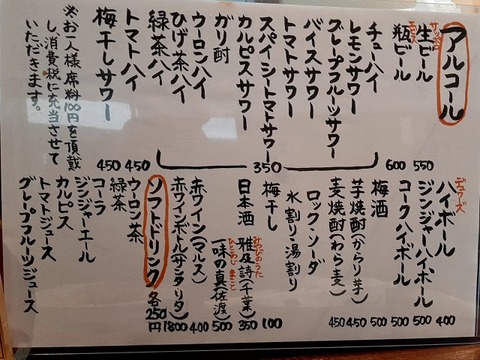 アルコール
サッポロ
生ビール 550
瓶ビール 600
チューハイ
レモンサワー
グレープフルーツサワー
バイスサワー
トマトサワー
スパイシートマトサワー
カルピスサワー
ガリ酎
ウーロンハイ
ひげ茶ハイ
緑茶ハイ
350
トマトハイ 450
梅干しサワー 450
※お一人様席料100円を頂戴
し消費税に充当させて
いただきます。
デュワーズ
ハイボール 400
ジンジャーハイボール 500
コークハイボール 500
梅酒 500
芋焼酎(からり芋) 450
麦焼酎(わら麦) 450
ロック・ソーダ
水割り・湯割り
梅干し 100
みやびのうた
日本酒 雅な詩(千葉) 350
ひとあじ まこと
一味の真(佐渡) 500
赤ワイン(マルス) 400
赤ワインボトル(サンタリタ) 1800
ソフトドリンク 各250円
ウーロン茶
緑茶
コーラ
ジンジャーエール
カルピス
トマトジュース
グレープフルーツジュース